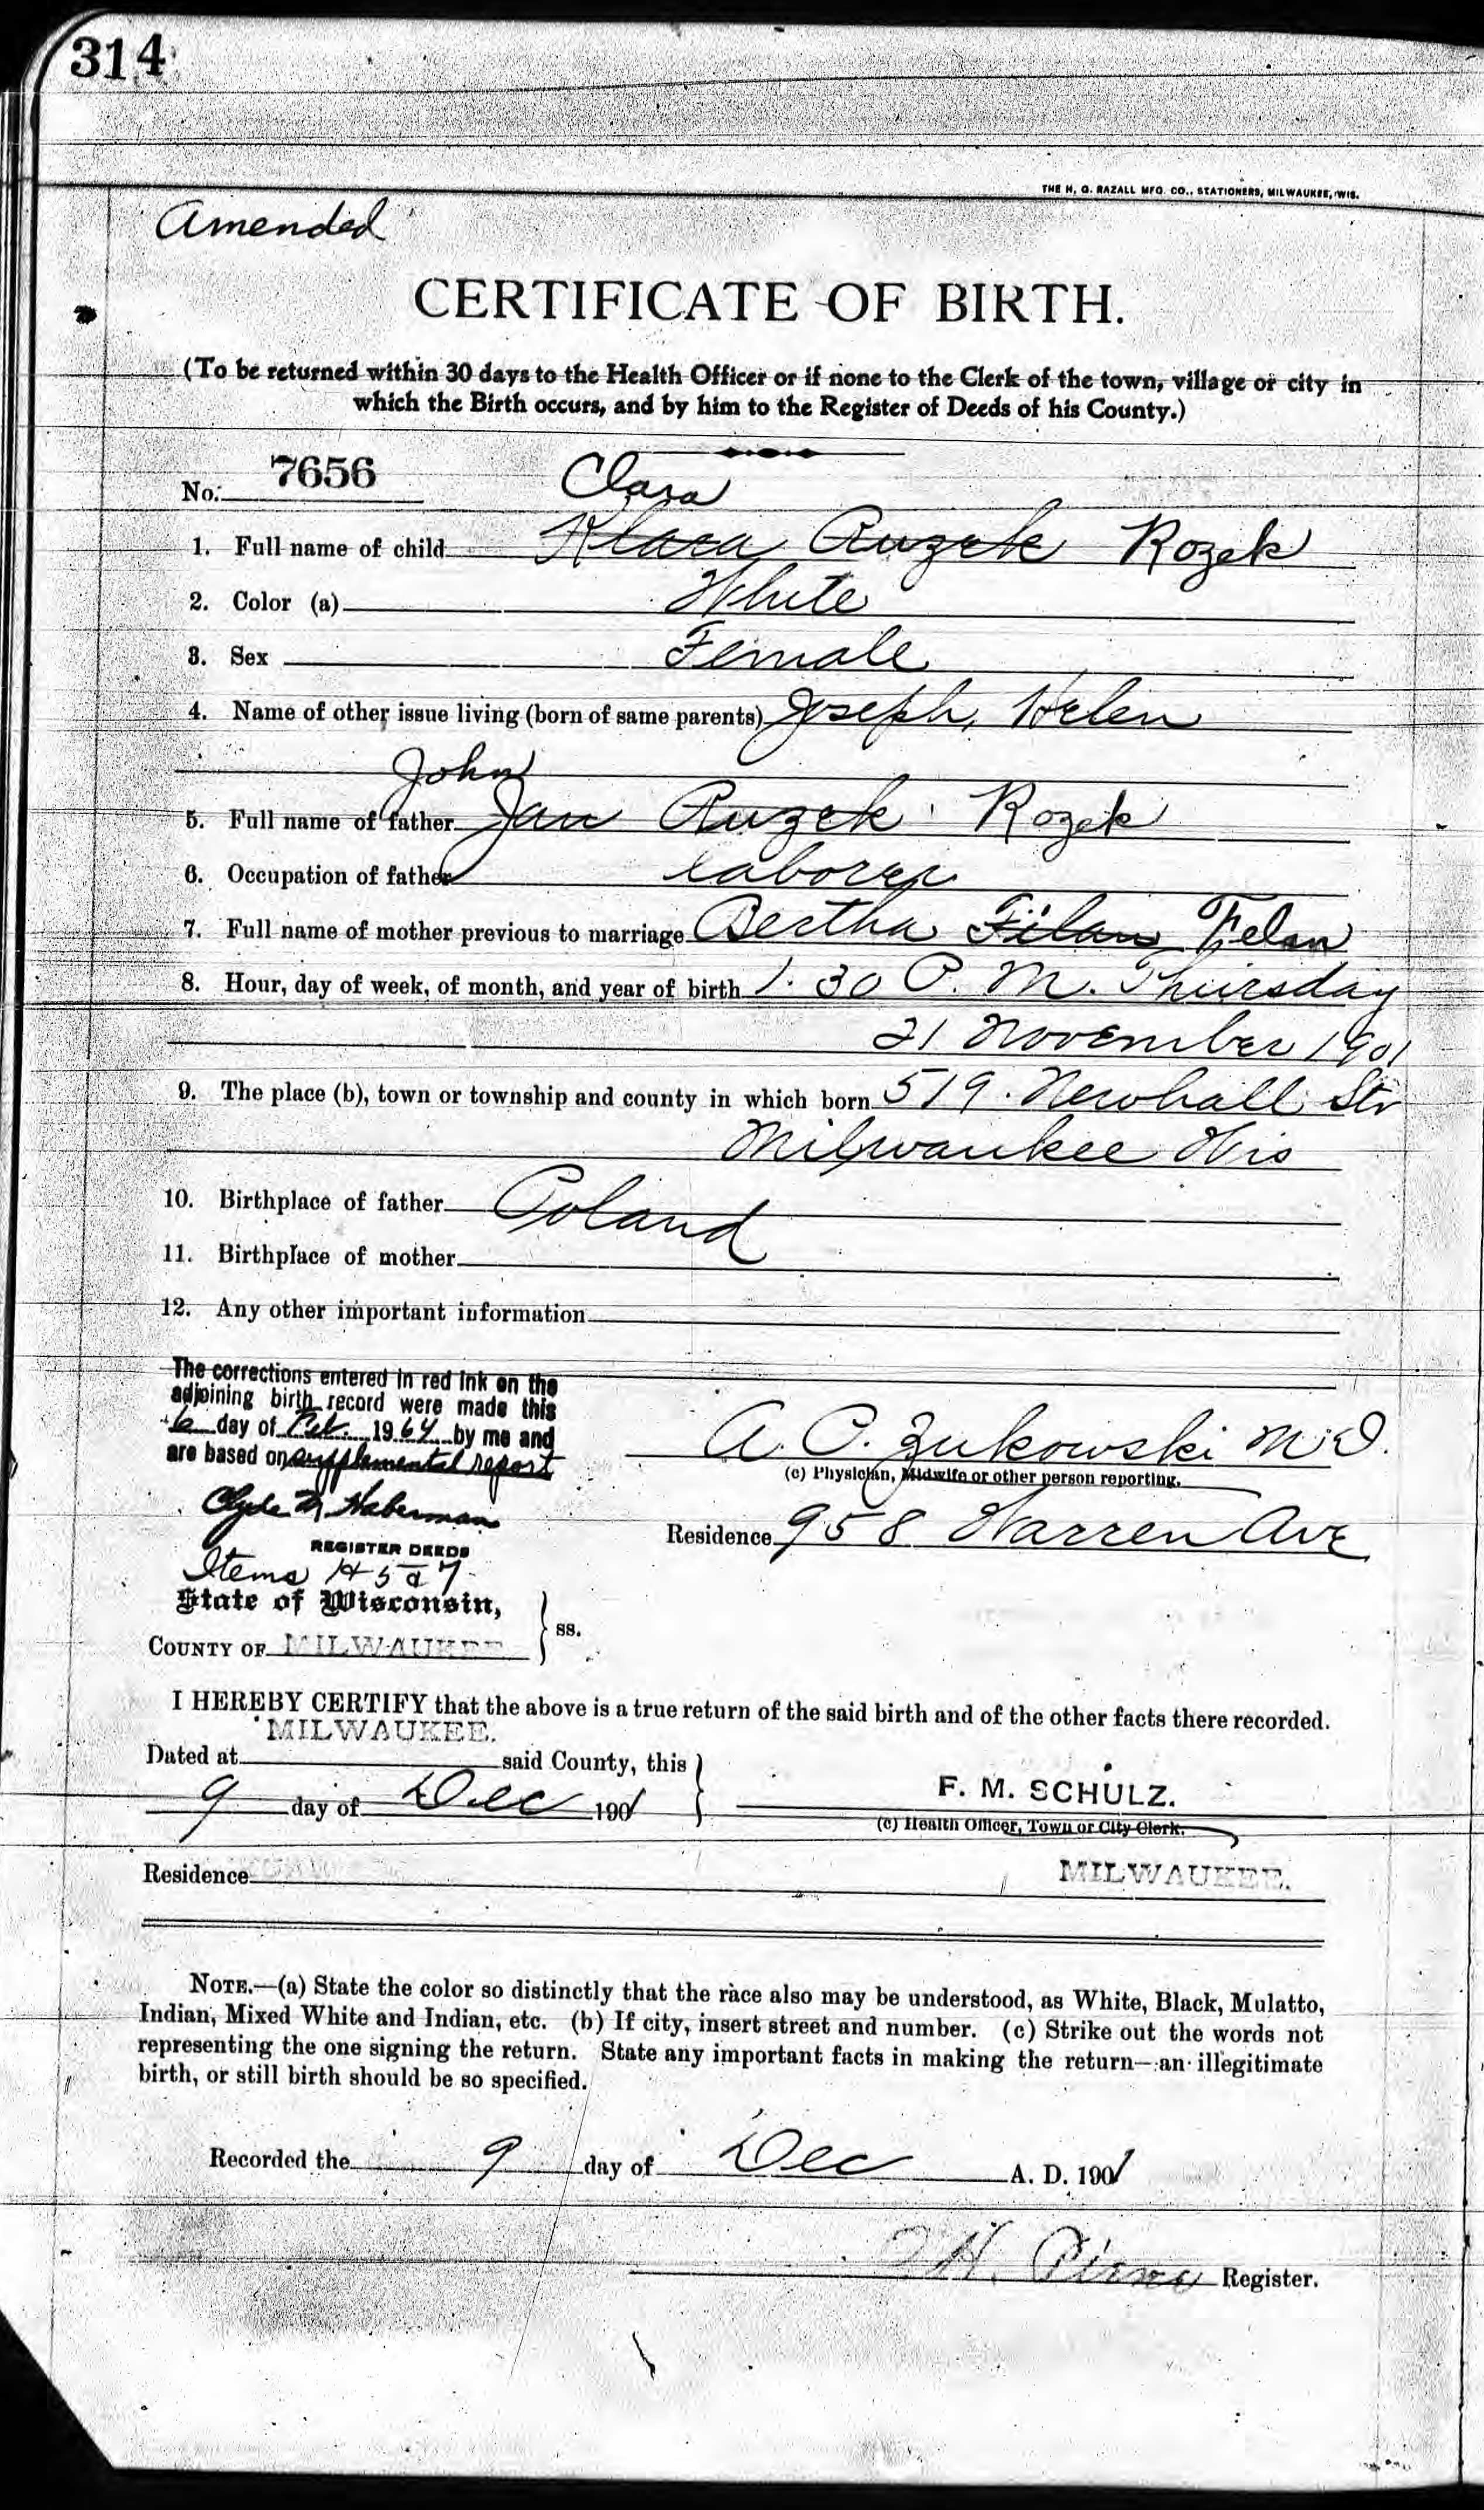 314
THE H. G. RAZALL MFG. CO., STATIONERS, MILWAUKEE, WIS.
Amended
CERTIFICATE OF BIRTH.
(To be returned within 30 days to the Health Officer or if none to the Clerk of the town, village or city in
which the Birth occurs, and by him to the Register of Deeds of his County.)
No. 7656
Clara
1. Full name of child Klara Ruzek Rozek
2. Color (a) White
3. Sex Female
4. Name of other issue living (born of same parents) Joseph, Helen
John
5. Full name of father Jan Ruzek Rozek
6. Occupation of father laborer
7. Full name of mother previous to marriage Bertha Filan Felan
8. Hour, day of week, of month, and year of birth 1.30 P. M. Thursday
21 November 1901
9. The place (b), town or township and county in which born 519. Newhall Str
Milwaukee Wis
10. Birthplace of father Poland
11. Birthplace of mother
12. Any other important information
The corrections entered in red ink on the
adjoining birth record were made this
6 day of Feb. 1964 by me and
are based on supplemental report
A. C. Zukowski M.D.
(c) Physician, Midwife or other person reporting.
Clyde M Haberman
REGISTER DEEDS
Residence 958 Warren Ave
Items 1 5 7
State of Wisconsin,
COUNTY OF MILWAUKEE } ss.
I HEREBY CERTIFY that the above is a true return of the said birth and of the other facts there recorded.
Dated at MILWAUKEE. said County, this
9 day of Dec 1901
F. M. SCHULZ.
(c) Health Officer, Town or City Clerk.
Residence MILWAUKEE.
NOTE.—(a) State the color so distinctly that the race also may be understood, as White, Black, Mulatto,
Indian, Mixed White and Indian, etc. (b) If city, insert street and number. (c) Strike out the words not
representing the one signing the return. State any important facts in making the return—an illegitimate
birth, or still birth should be so specified.
Recorded the 9 day of Dec A. D. 1901
Register.